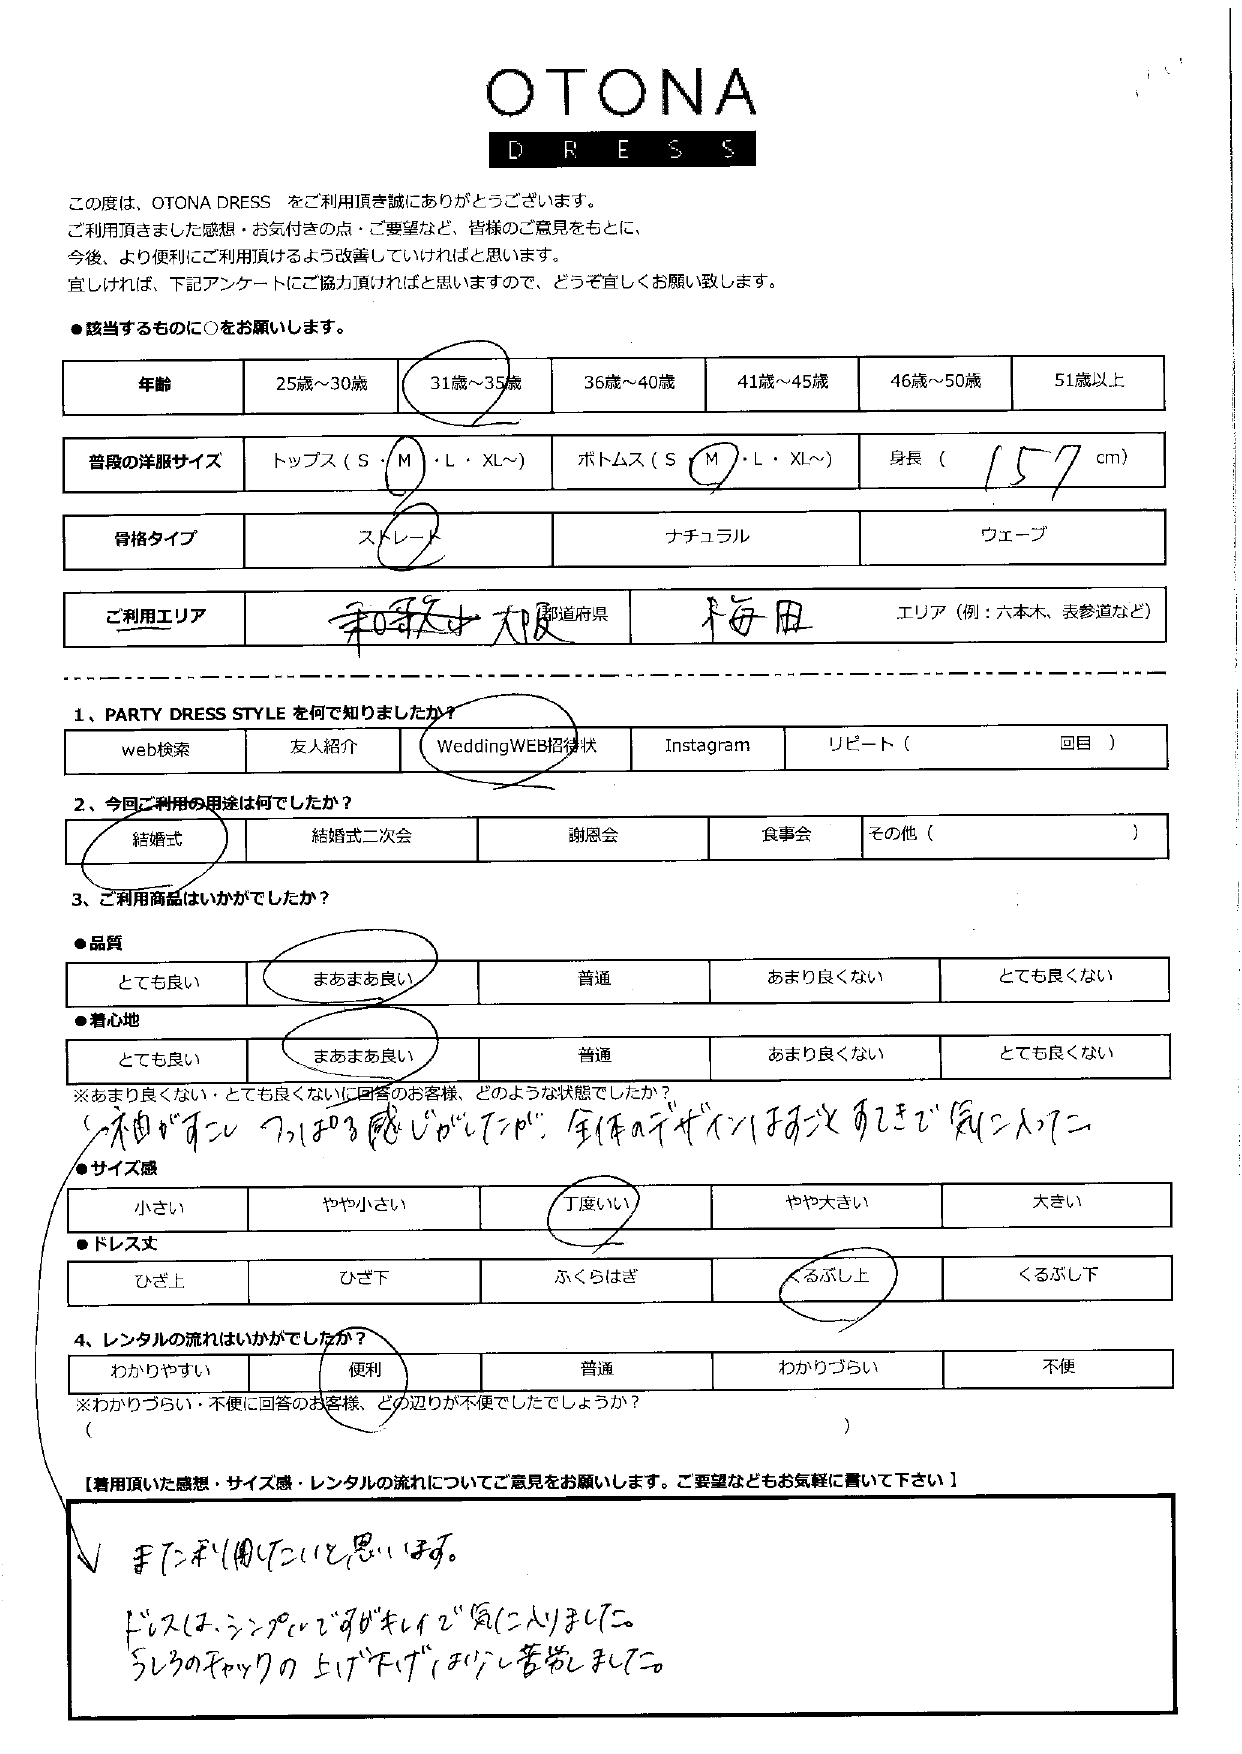 OTONA
DRESS
この度は、OTONA DRESS をご利用頂き誠にありがとうございます。
ご利用頂きました感想・お気付きの点・ご要望など、皆様のご意見をもとに、
今後、より便利にご利用頂けるよう改善していければと思います。
宜しければ、下記アンケートにご協力頂ければと思いますので、どうぞ宜しくお願い致します。
●該当するものに○をお願いします。
年齢 25歳～30歳 31歳～35歳 36歳～40歳 41歳～45歳 46歳～50歳 51歳以上
普段の洋服サイズ トップス ( S ・ M ・ L ・ XL～) ボトムス ( S ・ M ・ L ・ XL～) 身長 ( 157 cm)
骨格タイプ ストレート ナチュラル ウェーブ
ご利用エリア 和歌山 大阪 都道府県 梅田 エリア（例：六本木、表参道など）
1、PARTY DRESS STYLE を何で知りましたか？
web検索 友人紹介 WeddingWEB招待状 Instagram リピート ( 回目 )
2、今回ご利用の用途は何でしたか？
結婚式 結婚式二次会 謝恩会 食事会 その他 ( )
3、ご利用商品はいかがでしたか？
●品質
とても良い まあまあ良い 普通 あまり良くない とても良くない
●着心地
とても良い まあまあ良い 普通 あまり良くない とても良くない
※あまり良くない・とても良くないに回答のお客様、どのような状態でしたか？
袖がすこし つっぱる感じがしたが、全体のデザインはすごくすてきで気に入った
●サイズ感
小さい やや小さい 丁度いい やや大きい 大きい
●ドレス丈
ひざ上 ひざ下 ふくらはぎ くるぶし上 くるぶし下
4、レンタルの流れはいかがでしたか？
わかりやすい 便利 普通 わかりづらい 不便
※わかりづらい・不便に回答のお客様、どの辺りが不便でしたでしょうか？
( )
【着用頂いた感想・サイズ感・レンタルの流れについてご意見をお願いします。ご要望などもお気軽に書いて下さい】
また利用したいと思います。
ドレスは、シンプルですがキレイで気に入りました。
うしろのチャックの上げ下げは少し苦労しました。